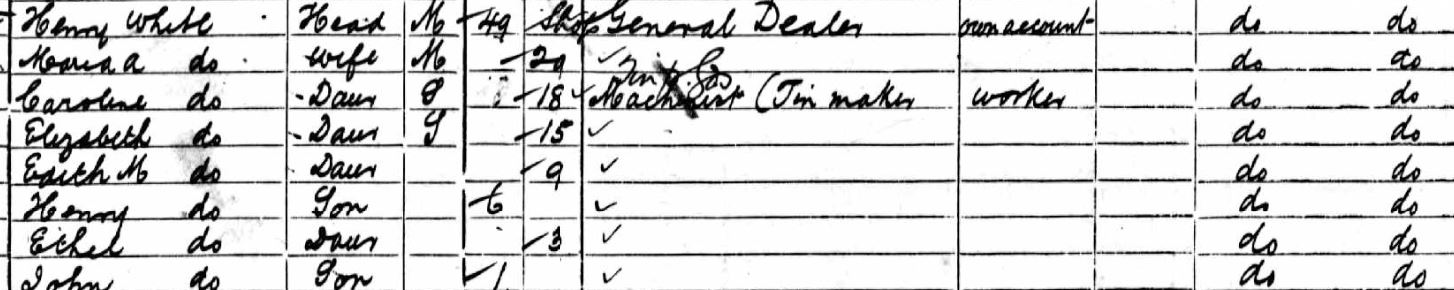 Henry White Head M 49 Shop General Dealer own account do do
Maria A do wife M 29 do do
Caroline do Daur S 18 Machinist (Tin maker worker do do
Elizabeth do Daur S 15 do do
Edith M do Daur 9 do do
Henry do Son 6 do do
Ethel do Daur 3 do do
John do Son 1 do do